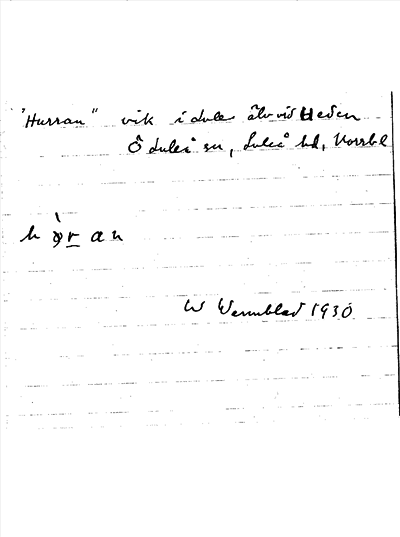 "Hurran" vik i Lule älv vid Heden
Ö Luleå sn, Luleå hd, Norrbl
W Wennblad 1930